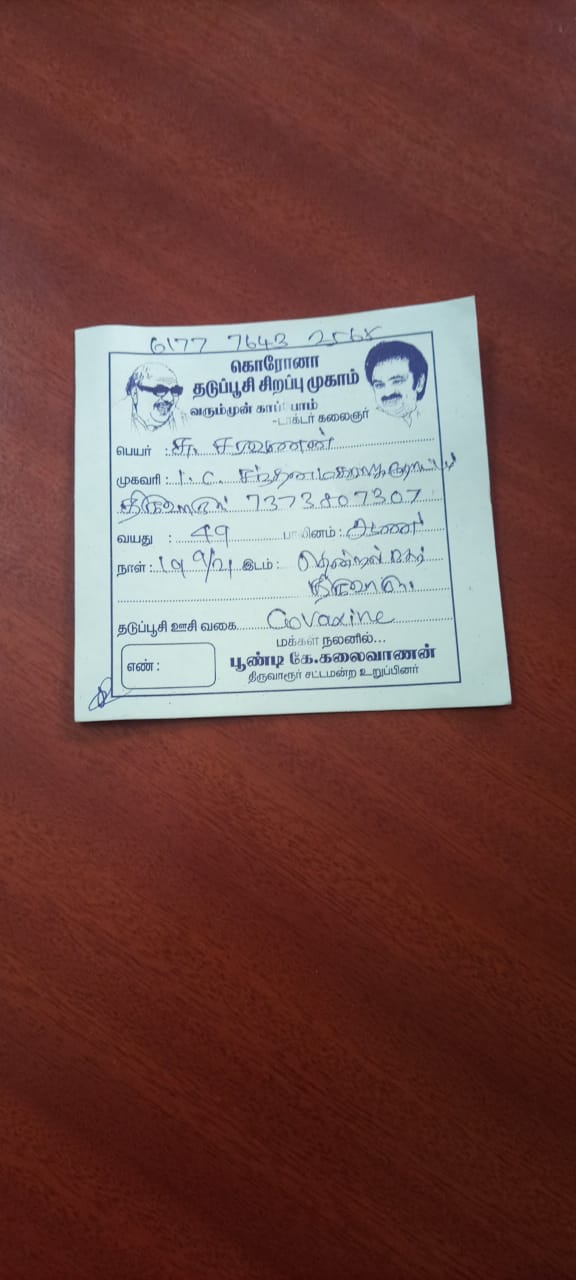 6177 7643 2568
கொரோனா
தடுப்பூசி சிறப்பு முகாம்
வருமுன் காப்பாம்
-டாக்டர் கலைஞர்
பெயர் : சு. சரவணன்
முகவரி : 1. C.
திருவாரூர் 7373807307
வயது : 49 பாலினம் : ஆண்
நாள் : 19 9/21 இடம் : தென்றல் நகர்
திருவாரூர்.
தடுப்பூசி ஊசி வகை Covaxine
மக்கள் நலனில்...
எண் : பூண்டி கே.கலைவாணன்
திருவாரூர் சட்டமன்ற உறுப்பினர்